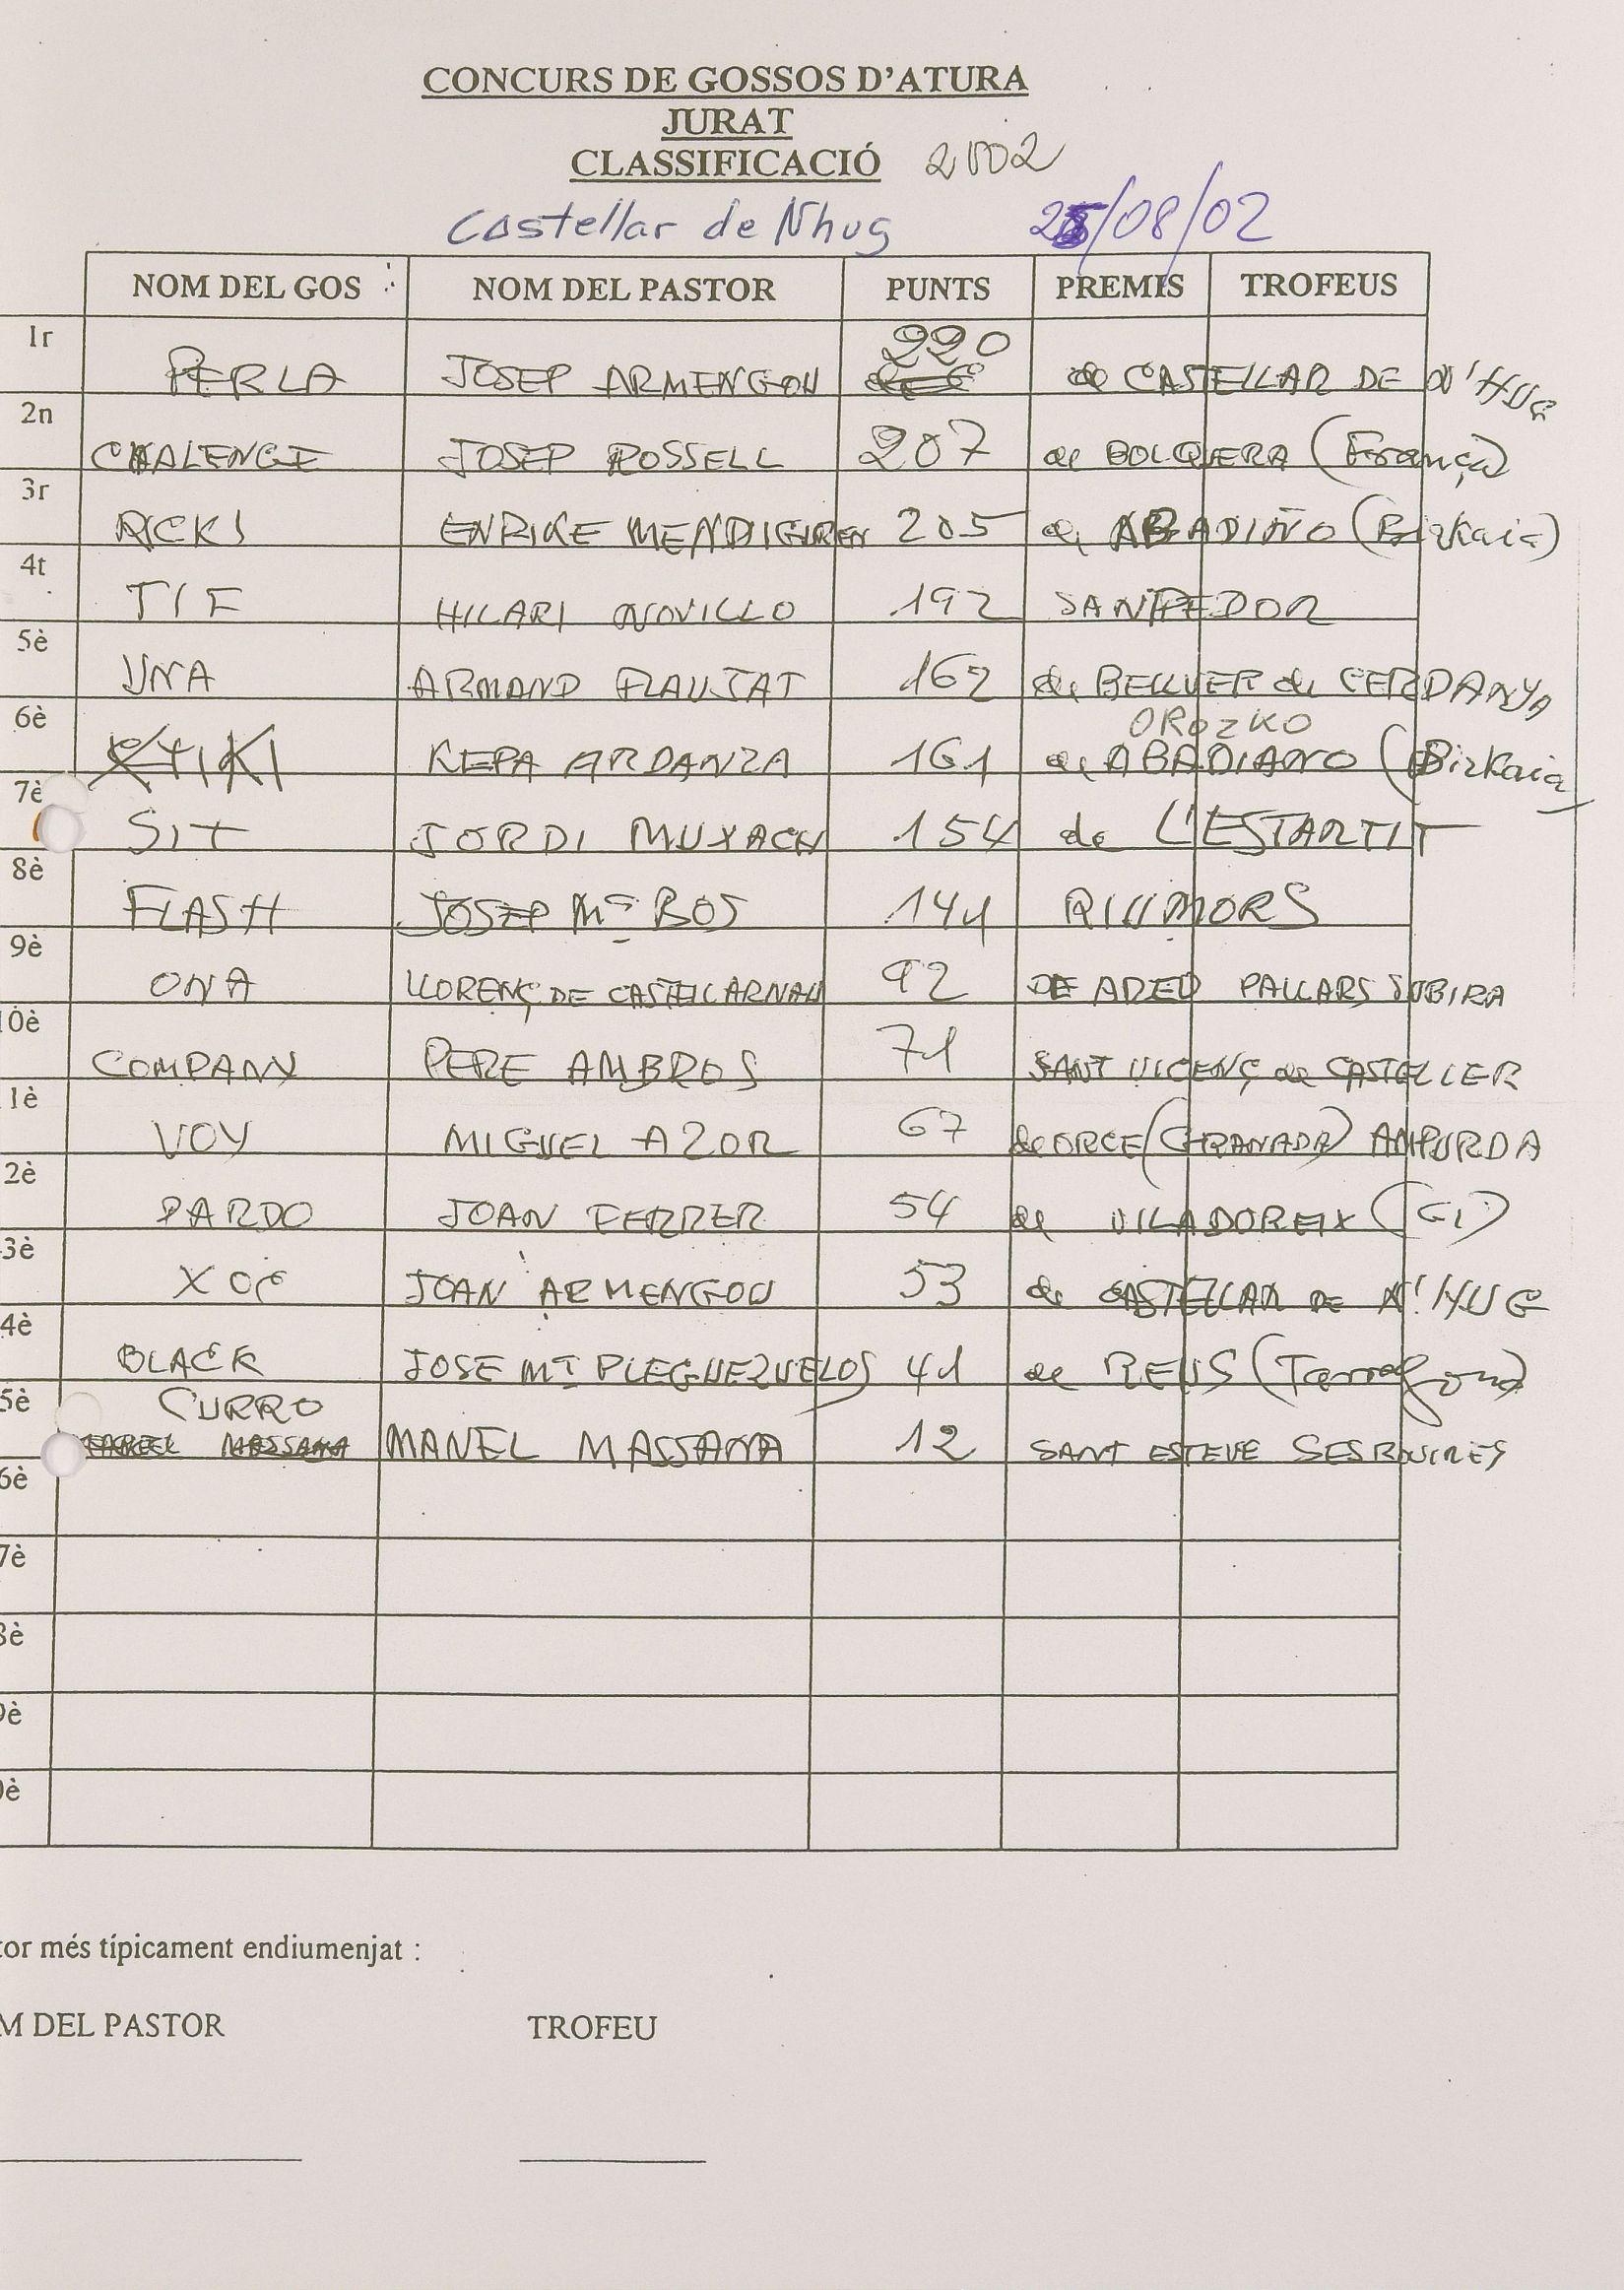 CONCURS DE GOSSOS D'ATURA
JURAT
CLASSIFICACIÓ 2002
Castellar de Nhug 25/08/02
NOM DEL GOS NOM DEL PASTOR PUNTS PREMIS TROFEUS
1r PERLA JOSEP ARMENGOU 220 de CASTELLAR DE N'HUG
2n CHALENGE JOSEP ROSSELL 207 de BOLQUERA (França)
3r RICKI ENRIKE MENDIGUREN 205 de ABADIÑO (Bizkaia)
4t TIF HILARI NOVILLO 192 SANTPEDOR
5è UNA ARMAND FLAUJAT 162 de BELLVER de CERDANYA
OROZKO
6è KEPA ARDANZA 161 de ABADIANO (Bizkaia
7è SIT JORDI MUXACH 154 de L'ESTARTIT
8è FLASH JOSEP Mª BOS 141 RIUMORS
9è ONA LLORENÇ DE CASTELLARNAU 92 DE AREU PALLARS SOBIRA
10è COMPANY PERE AMBROS 71 SANT VICENÇ de CASTELLER
1è VOY MIGUEL AZOR 67 de ORCE (GRANADA) AMPURDA
2è PARDO JOAN FERRER 54 de VILADOREIX (GI)
3è XOC JOAN ARMENGOU 53 de CASTELLAR DE N'HUG
4è BLACK JOSE Mª PLEGUEZUELOS 41 de REUS (Tarragona)
5è CURRO MANEL MASSANA 12 SANT ESTEVE SESROVIRES
6è
7è
8è
9è
0è
tor més típicament endiumenjat :
M DEL PASTOR TROFEU